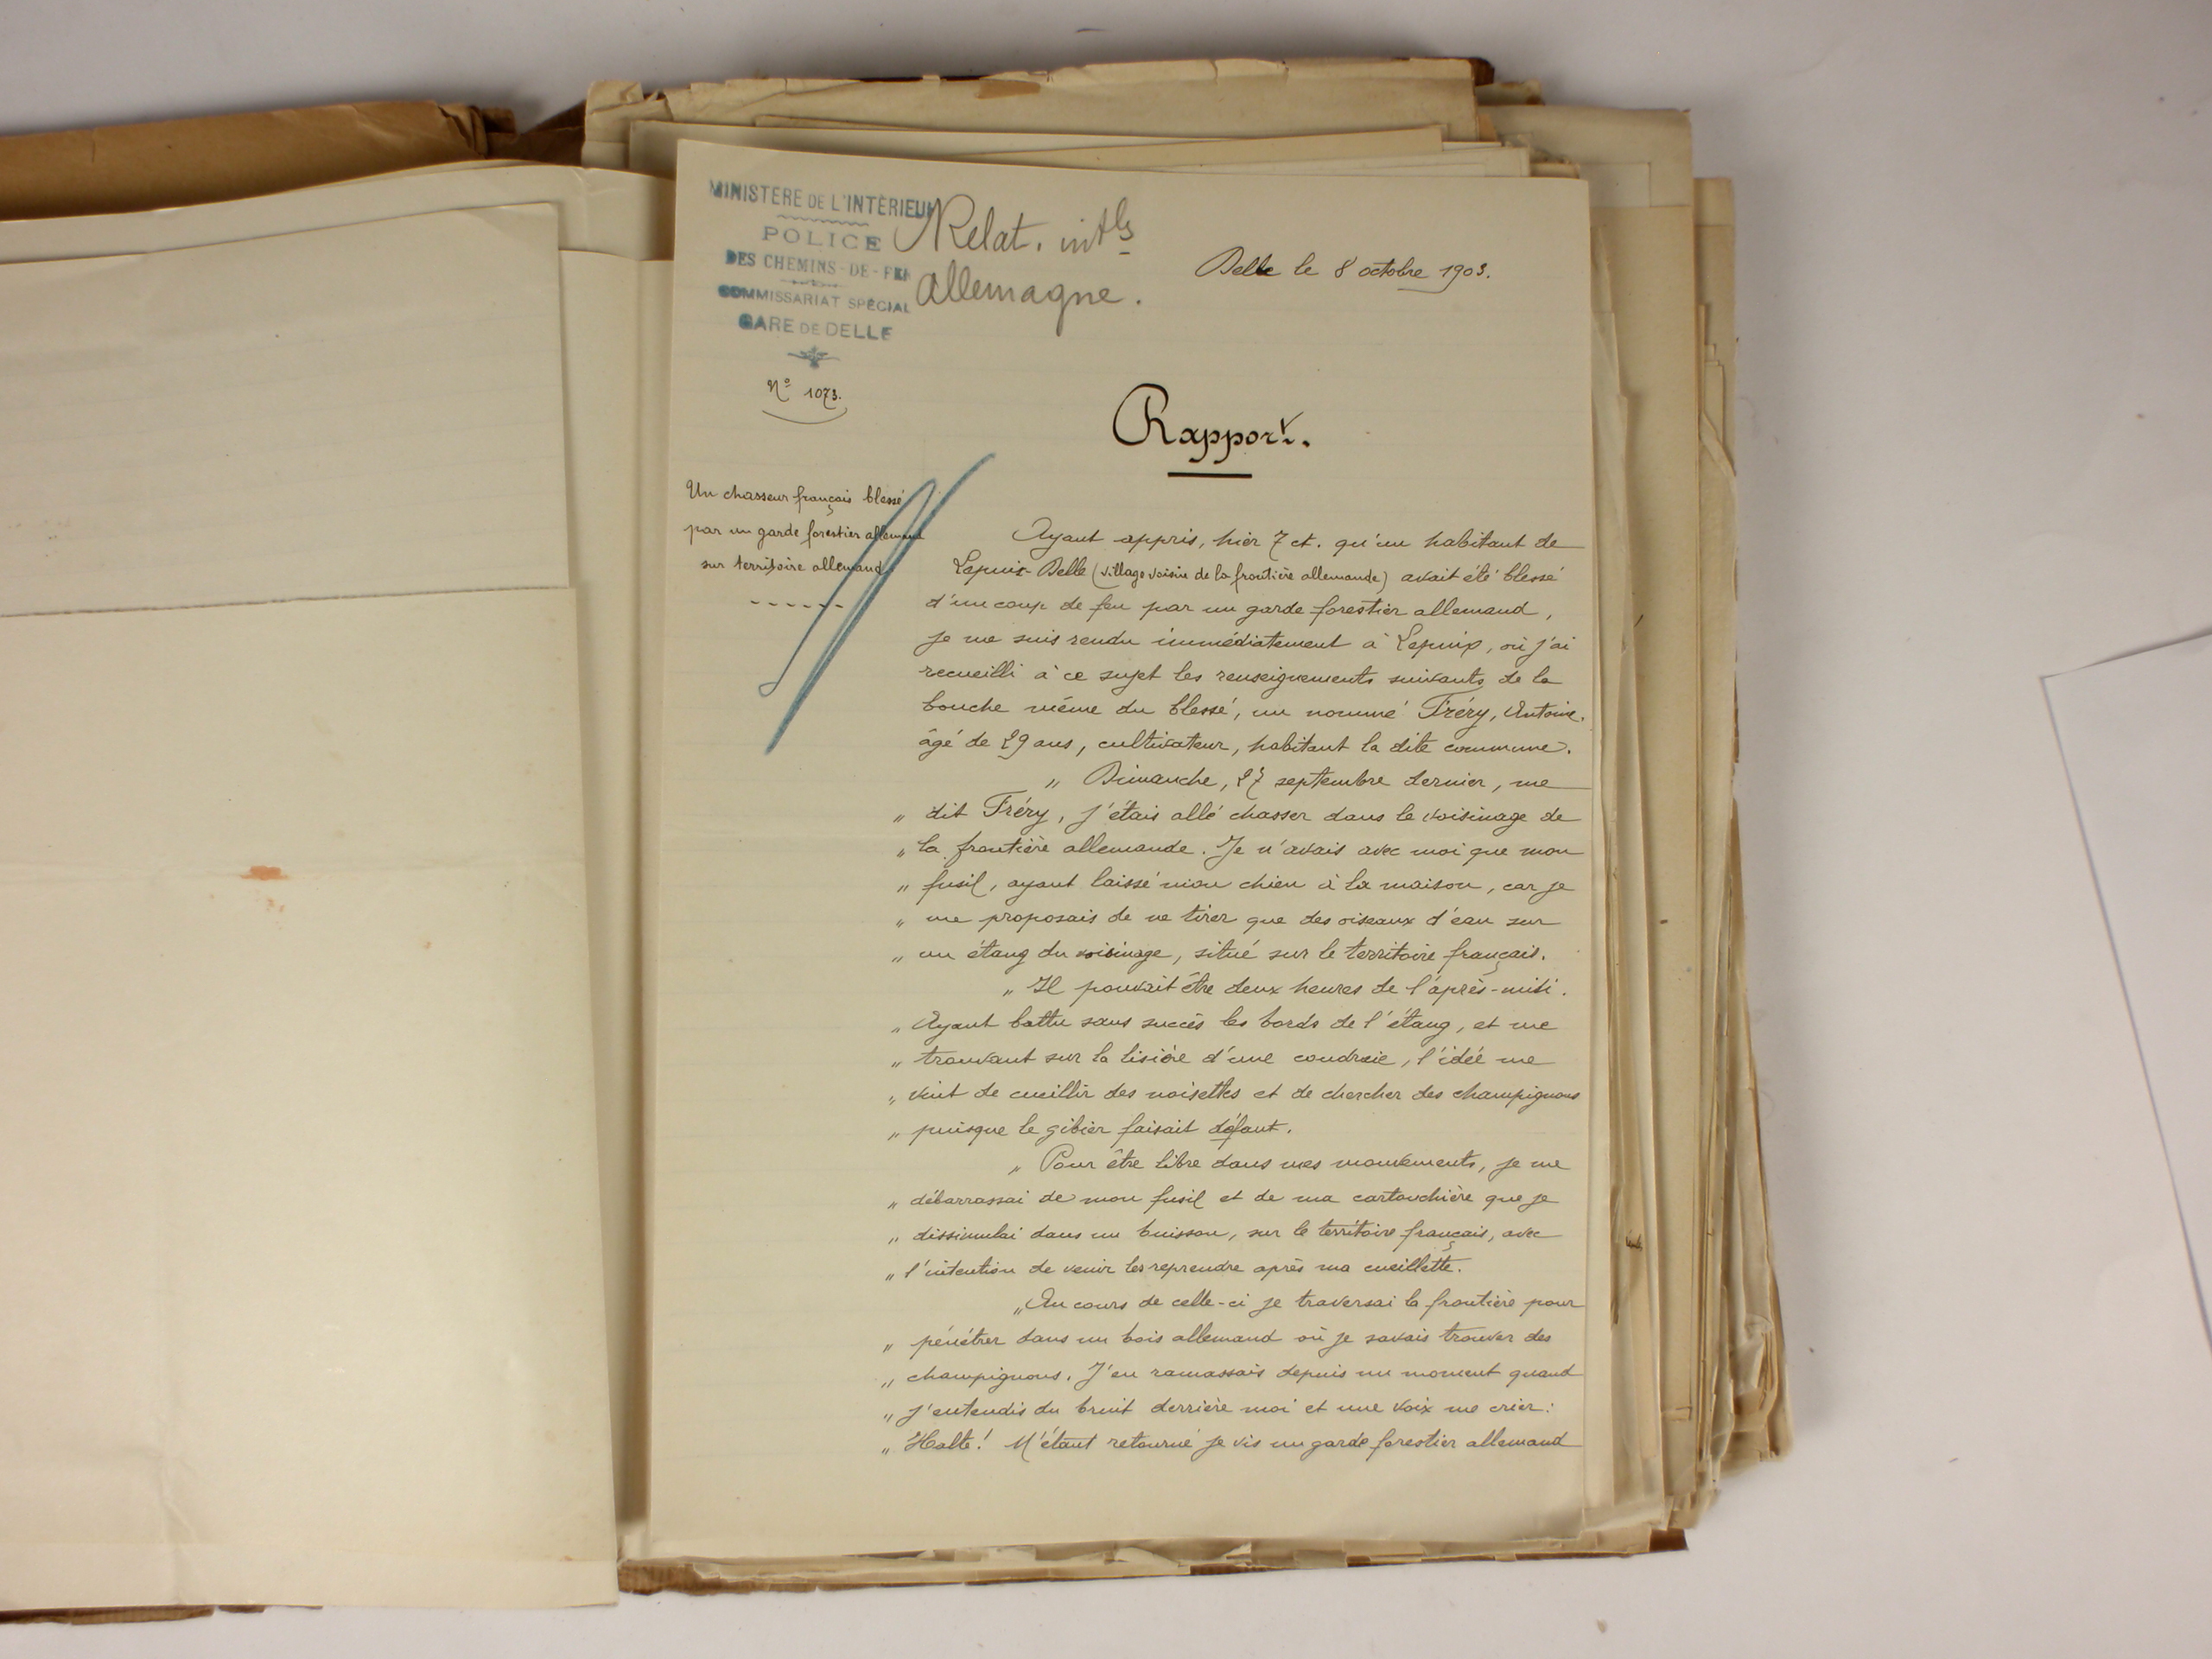 MINISTÈRE DE L'INTÉRIEUR
POLICE
DES CHEMINS-DE-FER
COMMISSARIAT SPÉCIAL
GARE DE DELLE
Relat. intles
Allemagne.
Delle le 8 octobre 1903.
No 1073.
Rapport.
Un chasseur français blessé
par un garde forestier allemand
sur territoire allemand
------
Ayant appris, hier 7 ct. qu'un habitant de
Lepuix-Delle (village voisin de la frontière allemande) avait été blessé
d'un coup de feu par un garde forestier allemand,
je me suis rendu immédiatement à Lepuix, où j'ai
recueilli à ce sujet les renseignements suivants de la
bouche même du blessé, un nommé Fréry, Antoine,
âgé de 29 ans, cultivateur, habitant la dite commune.
" Dimanche, 27 septembre dernier, me
" dit Fréry, j'étais allé chasser dans le voisinage de
" la frontière allemande. Je n'avais avec moi que mon
" fusil, ayant laissé mon chien à la maison, car je
" me proposais de ne tirer que des oiseaux d'eau sur
" un étang du voisinage, situé sur le territoire français.
" Il pouvait être deux heures de l'après-midi.
" Ayant battu sans succès les bords de l'étang, et me
" trouvant sur la lisière d'une coudraie, l'idée me
" vint de cueillir des noisettes et de chercher des champignons
" puisque le gibier faisait défaut.
" Pour être libre dans mes mouvements, je me
" débarrassai de mon fusil et de ma cartouchière que je
" dissimulai dans un buisson, sur le territoire français, avec
" l'intention de venir les reprendre après ma cueillette.
" Au cours de celle-ci je traversai la frontière pour
" pénétrer dans un bois allemand où je savais trouver des
" champignons. J'en ramassais depuis un moment quand
" j'entendis du bruit derrière moi et une voix me crier:
" Halte! M'étant retourné je vis un garde forestier allemand